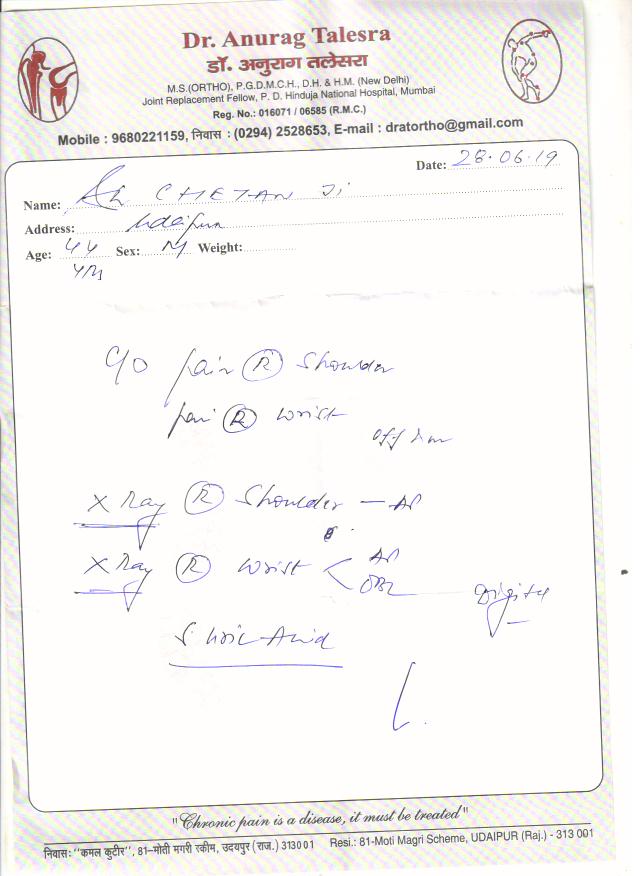 Dr. Anurag Talesra
डॉ. अनुराग तलेसरा
M.S.(ORTHO), P.G.D.M.C.H., D.H. & H.M. (New Delhi)
Joint Replacement Fellow, P. D. Hinduja National Hospital, Mumbai
Reg. No.: 016071 / 06585 (R.M.C.)
Mobile : 9680221159, निवास : (0294) 2528653, E-mail : dratortho@gmail.com
Date: 28.06.19
Name: Sh CHETAN Ji
Address: Udaipur
Age: 44 Sex: M Weight:
yrs
C/O pain R Shoulder
pain R wrist
off & on
X Ray R Shoulder - AP
X Ray R wrist < AP
OBL
Digital
S Uric Acid
"Chronic pain is a disease, it must be treated"
निवास: "कमल कुटीर", 81-मोती मगरी स्कीम, उदयपुर (राज.) 313001 Resi.: 81-Moti Magri Scheme, UDAIPUR (Raj.) - 313 001